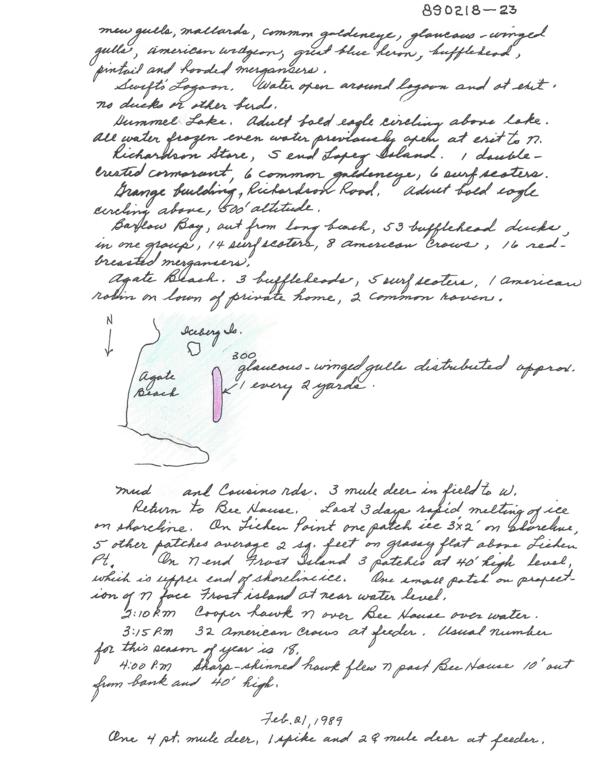 890218-23
mew gulls, mallards, common goldeneye, glaucous-winged
gulls, american widgeon, great blue heron, bufflehead,
pintail and hooded mergansers.
Swift's Lagoon. Water open around lagoon and at exit.
no ducks or other birds.
Hummel Lake. Adult bald eagle circling above lake.
All water frozen even water previously open at exit to N.
Richardson Store, S end Lopez Island. 1 double-
crested cormorant, 6 common goldeneye, 6 surf scoters.
Grange building, Richardson Road. Adult bald eagle
circling above, 500' altitude.
Barlow Bay, out from long beach, 53 bufflehead ducks,
in one group, 14 surf scoters, 8 american crows, 16 red-
breasted mergansers.
Agate Beach. 3 buffleheads, 5 surf scoters, 1 american
robin on lawn of private home, 2 common raven.
N
Iceberg Is.
Agate
Beach
300
glaucous-winged gulls distributed approx.
1 every 2 yards.
mud and Cousins rds. 3 mule deer in field to W.
Return to Bee House. Last 3 days rapid melting of ice
on shoreline. On Lichen Point one patch ice 3x2' on shoreline,
5 other patches average 2 sq. feet on grassy flat above Lichen
Pt. On N end Frost Island 3 patches at 40' high level,
which is upper end of shoreline ice. One small patch on project-
ion of N face Frost island at near water level.
2:10 P.M. Cooper hawk N over Bee House over water.
3:15 P.M 32 American Crows at feeder. Usual number
for this season of year is 18.
4:00 P.M Sharp-skinned hawk flew N past Bee House 10' out
from bank and 40' high.
Feb. 21, 1989
One 4 pt. mule deer, 1 spike and 2 ♀ mule deer at feeder.